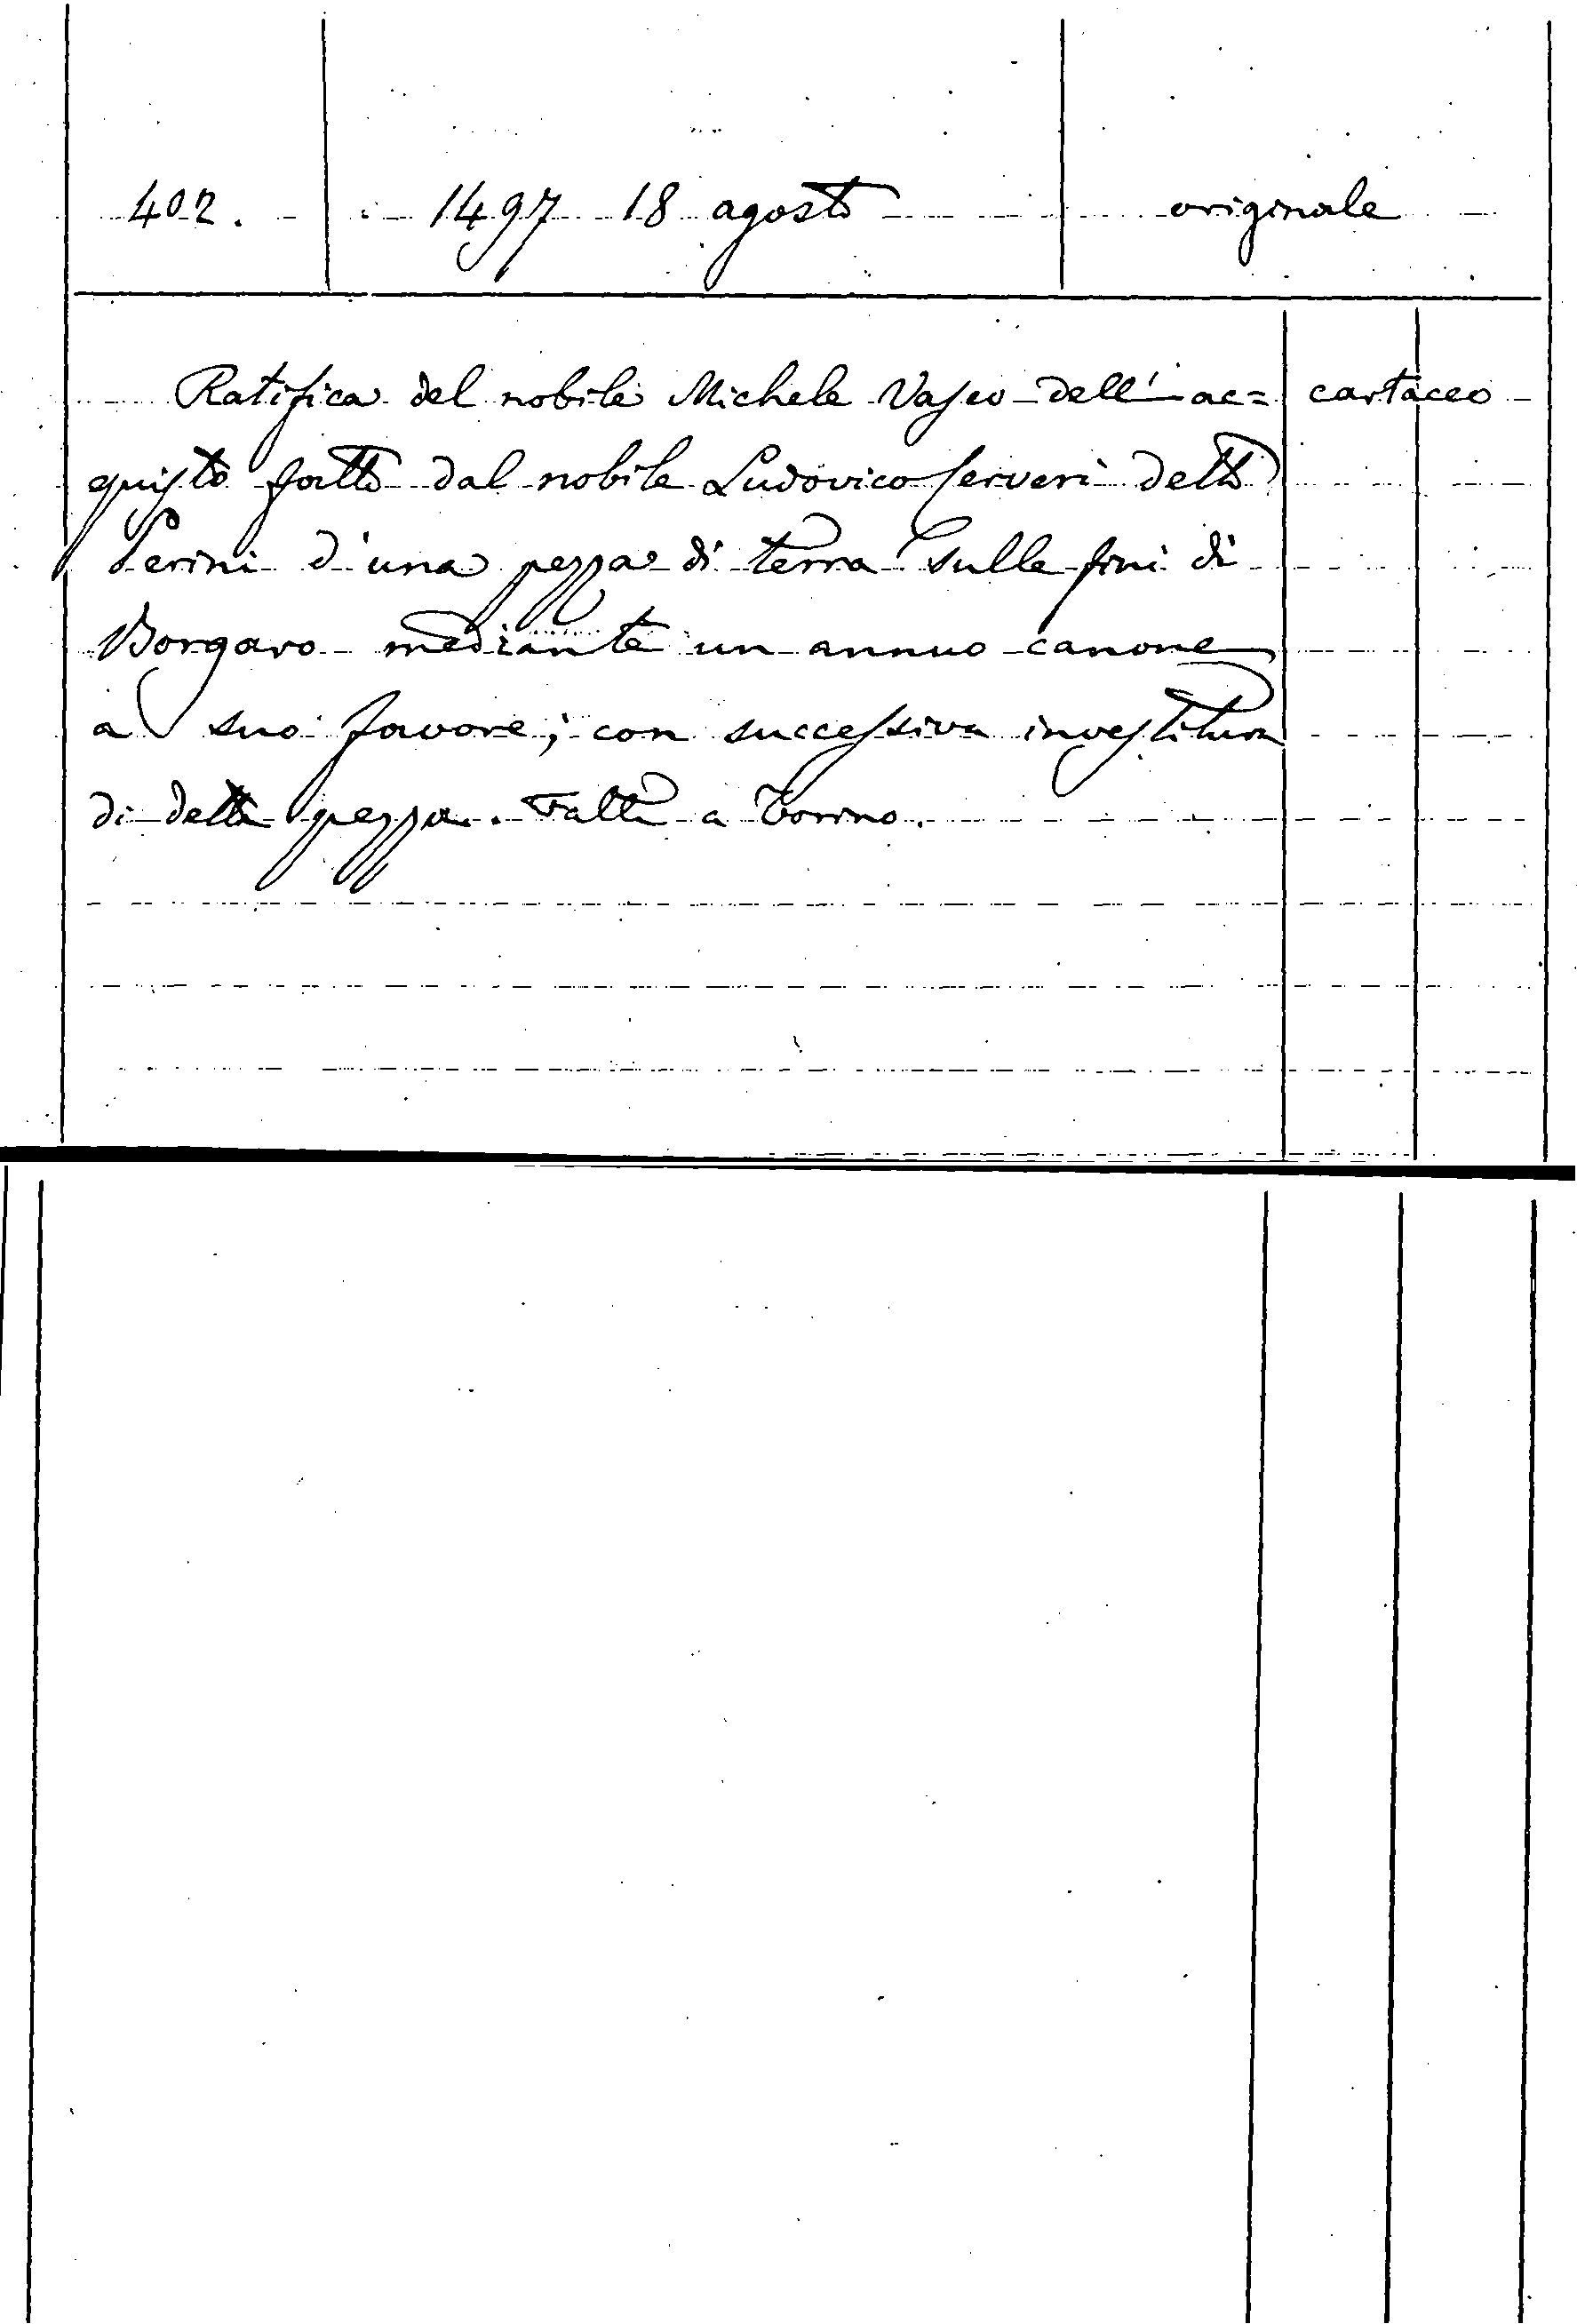 402. 1497 18 agosto originale
Ratifica del nobile Michele Vasco dell'ac= cartaceo
quisto fatto dal nobile Ludovico Cerveri detto
Perini d'una pezza di terra sulle fini di
Borgaro mediante un annuo canone
a suo favore; con successiva investitura
di detta pezza. Fatta a Torino.